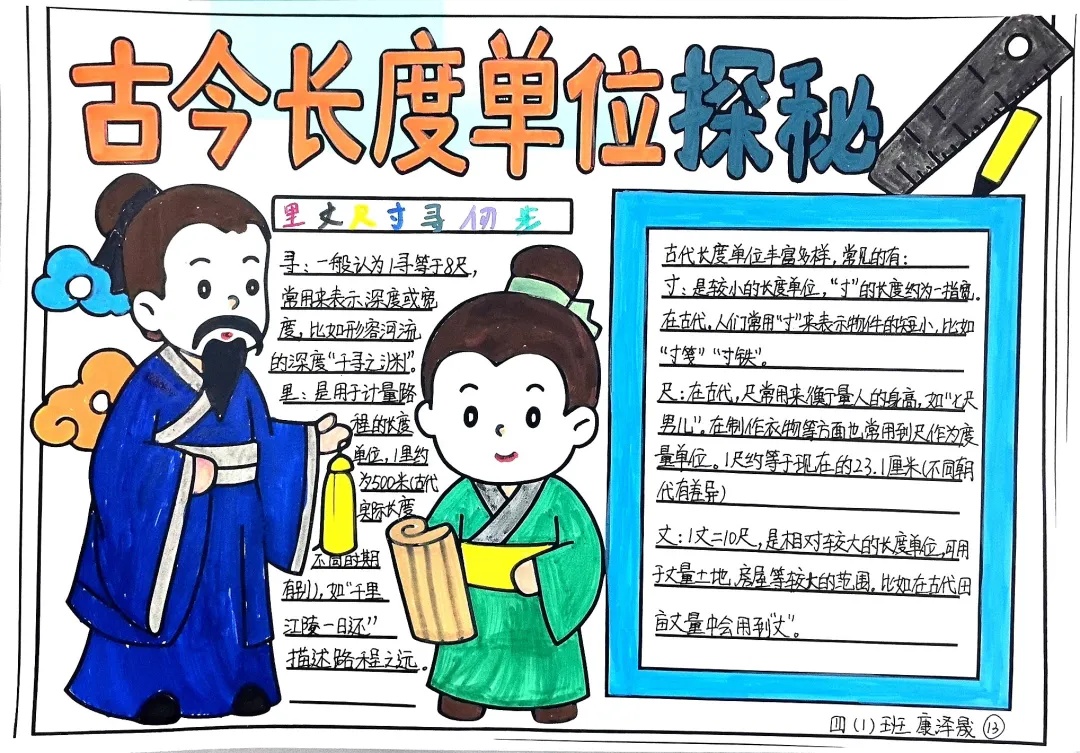 古今长度单位探秘
里丈尺寸寻仞步
寻：一般认为1寻等于8尺，
常用来表示深度或宽
度，比如形容河流
的深度“千寻之渊”。
里：是用于计量路
程的长度
单位，1里约
为500米(古代
实际长度
不同时期
有别)，如“千里
江陵一日还”
描述路程之远。
古代长度单位丰富多样，常见的有：
寸：是较小的长度单位，“寸”的长度约为一指宽。
在古代，人们常用“寸”来表示物件的短小，比如
“寸笺”“寸铁”。
尺：在古代，尺常用来衡量人的身高，如“七尺
男儿”。在制作衣物等方面也常用到尺作为度
量单位。1尺约等于现在的23.1厘米(不同朝
代有差异)
丈：1丈=10尺，是相对较大的长度单位，可用
于丈量土地，房屋等较大的范围。比如在古代田
亩丈量中会用到“丈”。
四(1)班 康泽晟 13